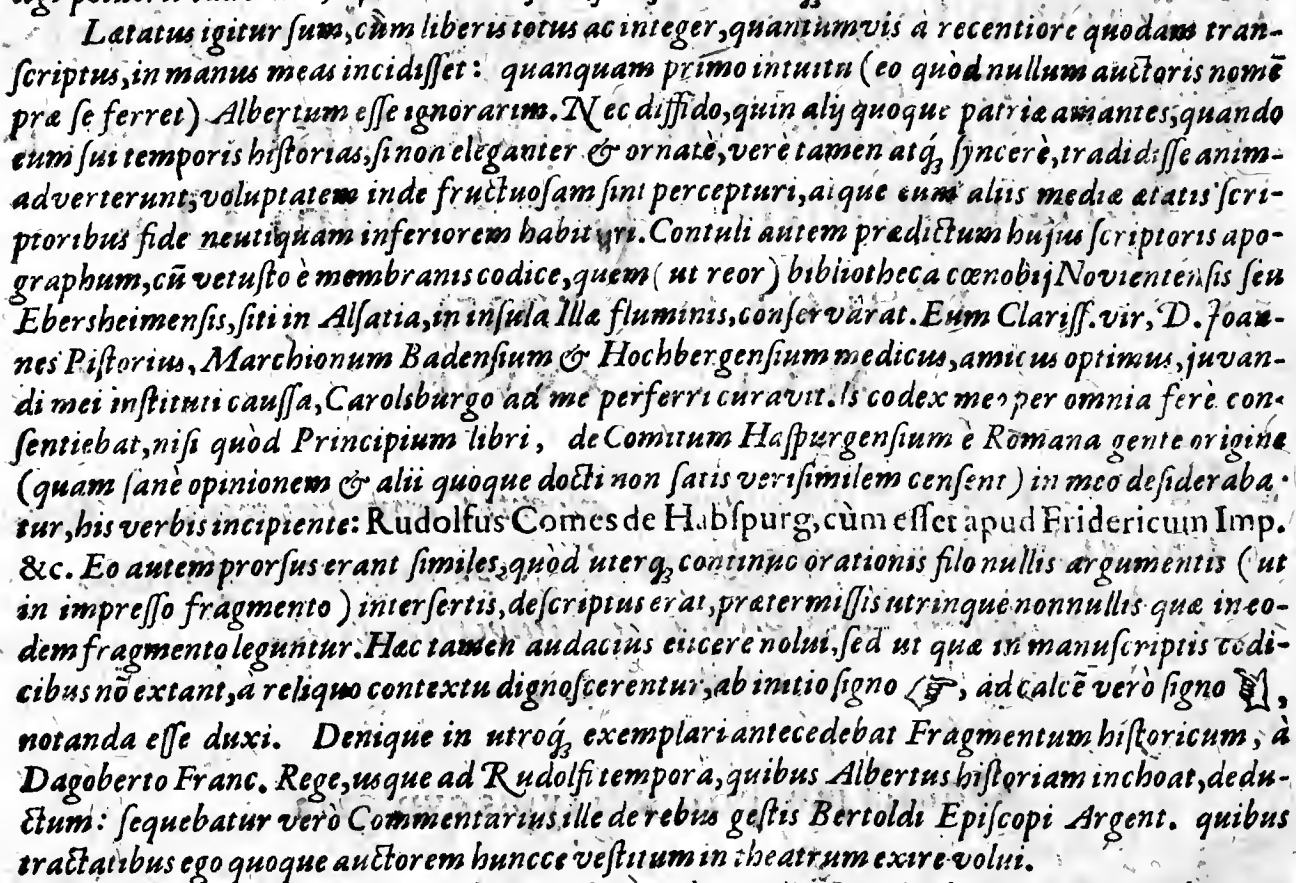 Lætatus igitur sum, cùm liber is totus ac integer, quantumvis à recentiore quodam tran-
scriptus, in manus meas incidisset: quanquam primo intuitu (eo quòd nullum auctoris nomē
præ se ferret) Albertum esse ignorarim. Nec diffido, quin alij quoque patriæ amantes, quando
eum sui temporis historias, si non eleganter & ornatè, verè tamen atq; syncerè, tradidisse anim-
adverterunt; voluptatem inde fructuosam sint percepturi, atque eum aliis mediæ ætatis scri-
ptoribus fide neutiquam inferiorem habituri. Contuli autem prædictum hujus scriptoris apo-
graphum, cū vetusto è membranis codice, quem (ut reor) bibliotheca cœnobij Novientensis seu
Ebersheimensis, siti in Alsatia, in insula Illæ fluminis, conservârat. Eum Clariss. vir, D. Joan-
nes Pistorius, Marchionum Badensium & Hochbergensium medicus, amicus optimus, juvan-
di mei instituti caussa, Carolsburgo ad me perferri curavit. Is codex meo per omnia ferè con-
sentiebat, nisi quòd Principium libri, de Comitum Haspurgensium è Romana gente origine
(quam sanè opinionem & alii quoque docti non satis verisimilem censent) in meo desideraba-
tur, his verbis incipiente: Rudolfus Comes de Habspurg, cùm esset apud Fridericum Imp.
&c. Eo autem prorsus erant similes, quòd uterq; continuo orationis filo nullis argumentis (ut
in impresso fragmento) intersertis, descriptus erat, prætermissis utrinque nonnullis quæ in eo-
dem fragmento leguntur. Hæc tamen audaciùs eiicere nolui, sed ut quæ in manuscriptis codi-
cibus nō extant, à reliquo contextu dignoscerentur, ab initio signo ☞, ad calcē verò signo ☟,
notanda esse duxi. Denique in utroq; exemplari antecedebat Fragmentum historicum, à
Dagoberto Franc. Rege, usque ad Rudolfi tempora, quibus Albertus historiam inchoat, dedu-
ctum: sequebatur verò Commentarius ille de rebus gestis Bertoldi Episcopi Argent. quibus
tractatibus ego quoque auctorem huncce vestitum in theatrum exire volui.